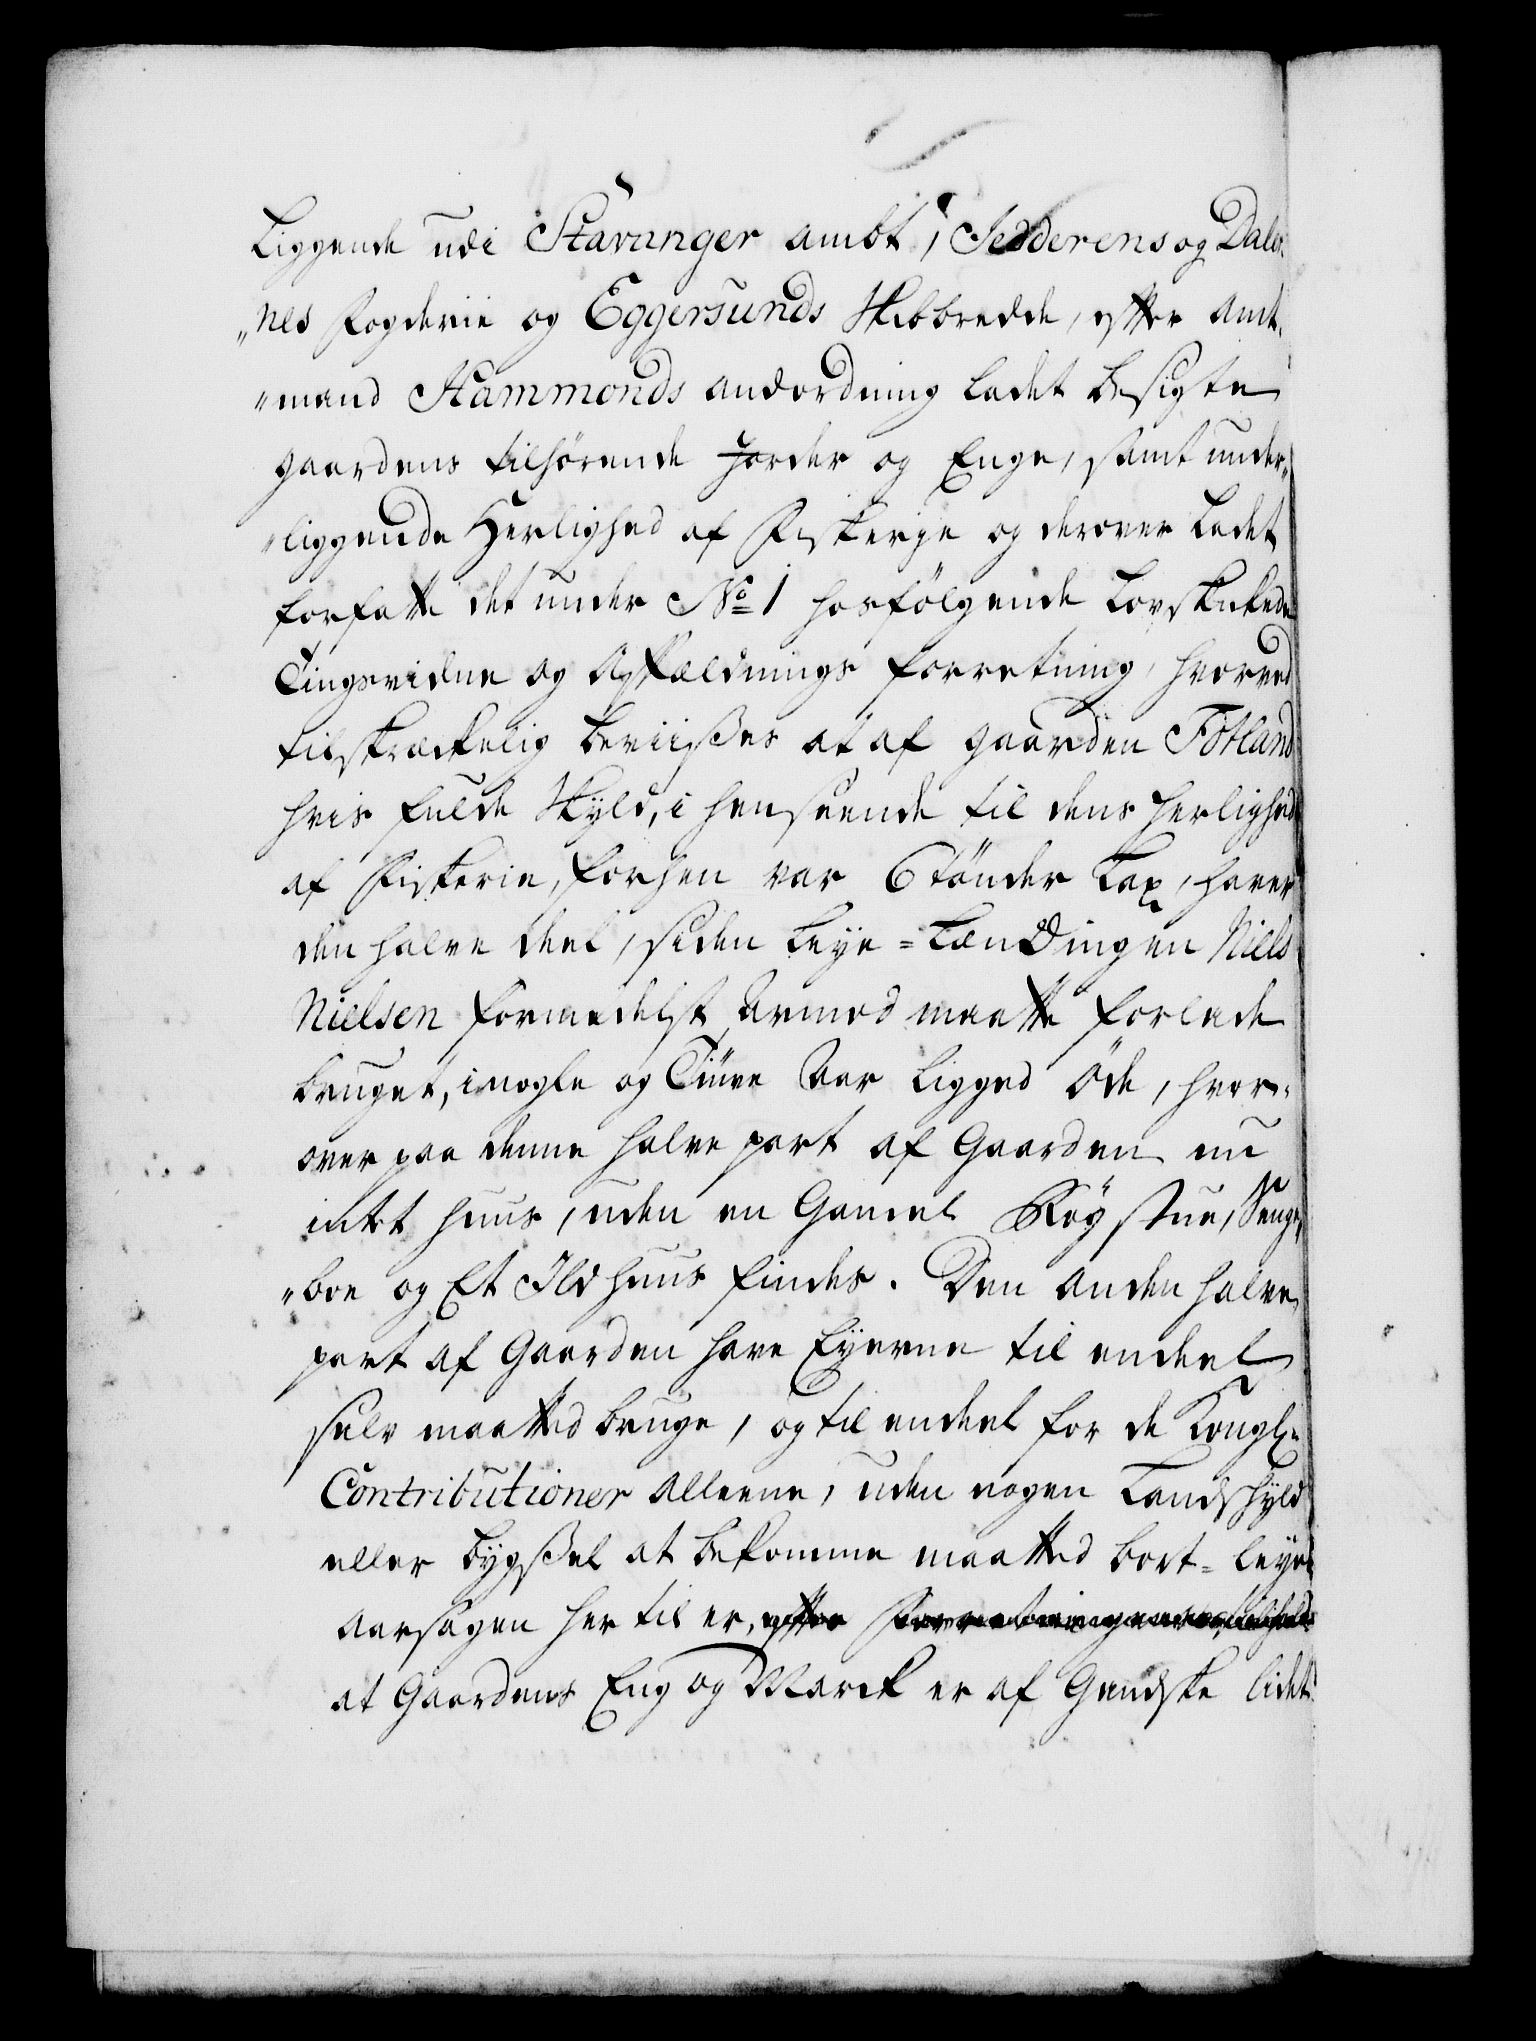 Liggende udi Stavanger ambt, Jedderens og Dale-
„nes Fogderie og Eggersunds Skibbredde, efter Amt-
„mand Hammonds anordning ladet besigte
gaardens tilhörende Jorder og Enge, samt under-
„liggende Herlighed af Fiskerje og derover Ladet
forfatte det under No 1 hosfölgende Lovskikede
Tingsvidne og Afældnings forretning, hvorved
tilstreckelig beviißes at af gaarden Fotland
hvis fulde Skyld, i henseende til dens herlighed
af Fiskerie, forhen var 6 tönder Lax, haver
den halve deel, siden Leye-Lændingen Niels
Nielsen formedelst Armod maatte forlade
bruget, i nogle og Tiuve Aar ligged öde, hvor-
over paa denne halve part af Gaarden nu
intet huus, uden en Gamel Röystue, Senge-
„boe og Et Ildhuus findes. Den anden halve
part af Gaarden have Eyerne til endeel
selv maatted bruge, og til endeel for de Kongl:
Contributioner alleene, uden nogen Landskyld
eller bygßel at bekomme maatted bort-leye
Aarsagen her til er, efter Forretningens
at Gaardens Eng og Marck er af Gandske lidet